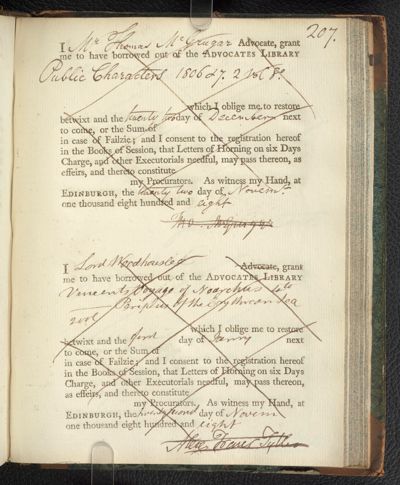 207.
I Mr Thomas McGrugar Advocate, grant
me to have borrowed out of the ADVOCATES LIBRARY
Public Characters 1806 & 7. 2 vol 8o
which I oblige me to restore
betwixt and the twenty two day of December next
to come, or the Sum of
in case of Failzie; and I consent to the registration hereof
in the Books of Session, that Letters of Horning on six Days
Charge, and other Executorials needful, may pass thereon, as
effeirs, and thereto constitute
my Procurators. As witness my Hand, at
EDINBURGH, the twenty two day of Novemr.
one thousand eight hundred and eight
Tho. McGrugar
I Lord Woodhouselee Advocate, grant
me to have borrowed out of the ADVOCATES LIBRARY
Vincents Voyage of Nearchus 4to
Periplus of the Erythrean Sea
2 vol
which I oblige me to restore
betwixt and the day of Janry next
to come, or the Sum of
in case of Failzie; and I consent to the registration hereof
in the Books of Session, that Letters of Horning on six Days
Charge, and other Executorials needful, may pass thereon, as
effeirs, and thereto constitute
my Procurators. As witness my Hand, at
EDINBURGH, the twenty second day of Novem
one thousand eight hundred and eight
Alexr Fraser Tytler